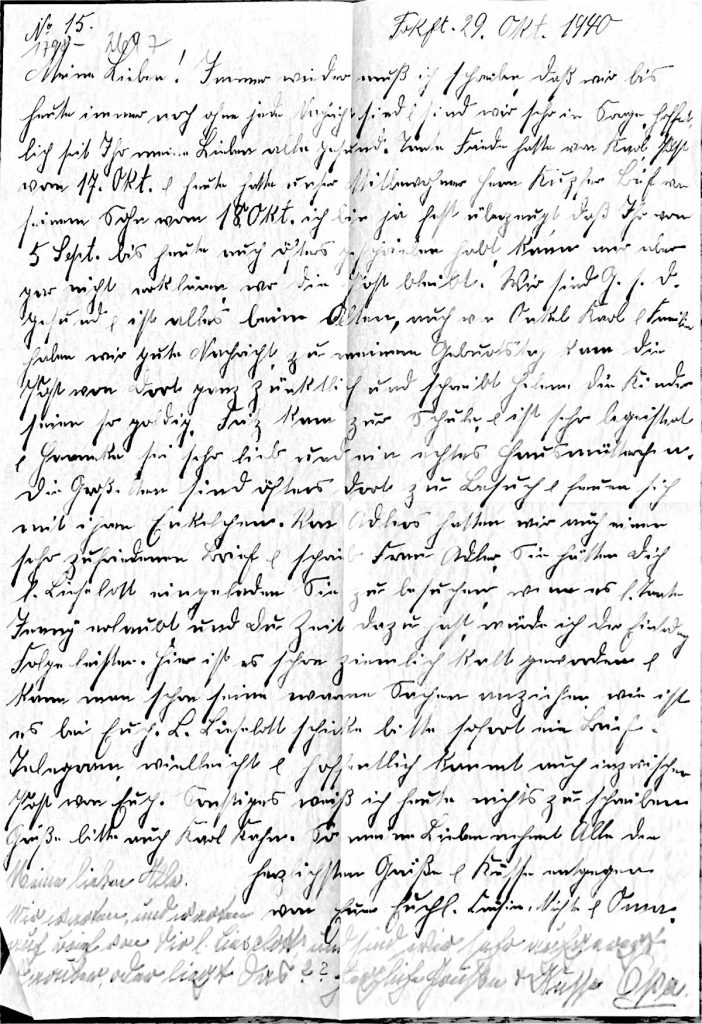 No 15. Frkft. 29. Okt. 1940
Meine Lieben! Immer wieder muß ich schreiben, daß wir bis
heute immer noch ohne jede Nachricht sind & sind wir sehr in Sorge, hoffent-
lich seit Ihr meine Lieben alle gesund. Tante Frieda hatte von Karl Post
vom 17. Okt. & heute hatte unser Mitbewohner Herr Brief von
seinem Sohn vom 18 Okt. ich bin ja fest überzeugt daß Ihr von
5 Sept. bis heute auch öfters geschrieben habt, kann mir aber
gar nicht erklären, wo die Post bleibt. Wir sind G. s. D.
gesund & ist alles beim Alten, auch von Onkel Karl & Familie
haben wir gute Nachricht, zu meinem Geburtstag kam die
Post von dort ganz pünktlich und schreibt Helene die Kinder
seien so goldig, Fritz kam zur Schule, & ist sehr begeistert
& sei sehr lieb und ein echtes Hausmütterchen.
Die Großeltern sind öfters dort zu Besuch & freuen sich
mit ihren Enkelchen. Von Adlers hatten wir auch einen
sehr zufriedenen Brief & schreibt Frau Adler, Sie hätten Dich
l. Lieselott eingeladen Sie zu besuchen, wenn es l. Tante
Jenny erlaubt und Du Zeit dazu hast, würde ich der Einladung
Folge leisten. Hier ist es schon ziemlich kalt geworden &
kann man schon seine warme Sachen anziehen, wie ist
es bei Euch. L. Lieselott schicke bitte sofort ein Brief-
Telegram, vielleicht & hoffentlich kommt auch inzwischen
Post von Euch. Sonstiges weiß ich heute nichts zu schreiben
Grüße bitte auch Karl Kahn. So meine Lieben nehmt Alle die
herzlichsten Grüße & Küsse entgegen
von Eurer Euchl. & Oma.
Meine lieben Alle.
Wir warten, und warten
auch von Dir l. Lieselott und sind wir sehr aufgeregt
oder liegt das?? Herzliche Grüße & Küsse Opa.